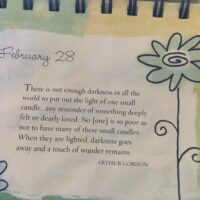 February 28
There is not enough darkness in all the
world to put out the light of one small
candle...they are lighted of something deeply
felt or dearly loved. No [one] is so poor as
not to have many of these small candles.
When they are lighted, darkness goes
away and a touch of wonder remains.
ARTHUR GORDON